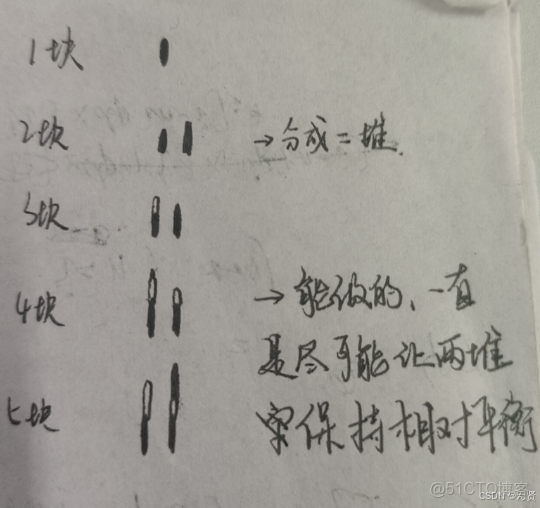 1块
2块 →分成二堆.
3块
4块 →能做的、一直
是尽可能让两堆
5块 保持相对平衡
@51CTO博客
CSDN @为贤